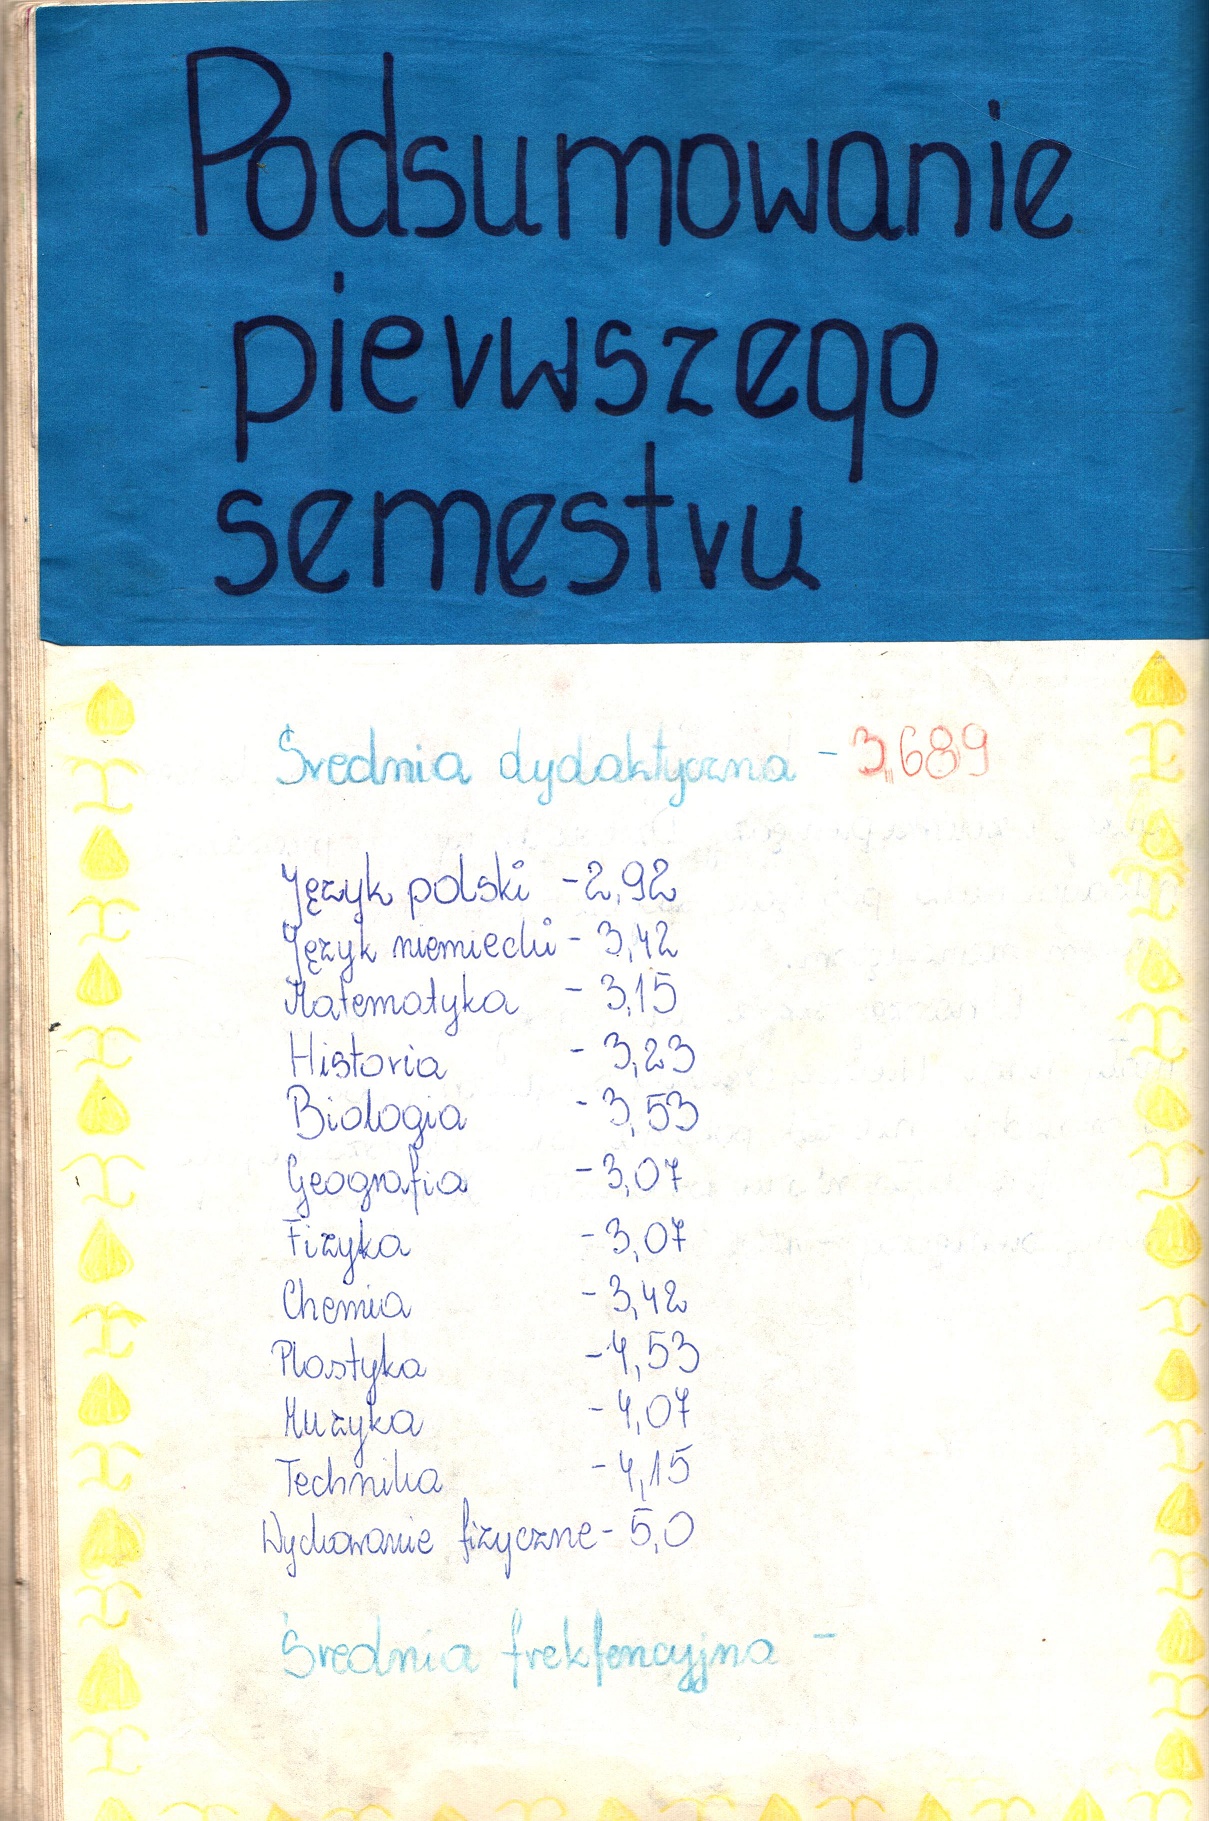 Podsumowanie
pierwszego
semestru
Średnia dydaktyczna - 3,689
Język polski - 2,92
Język niemiecki - 3,42
Matematyka - 3,15
Historia - 3,23
Biologia - 3,53
Geografia - 3,07
Fizyka - 3,07
Chemia - 3,42
Plastyka - 4,53
Muzyka - 4,07
Technika - 4,15
Wychowanie fizyczne - 5,0
Średnia frekfencyjna -